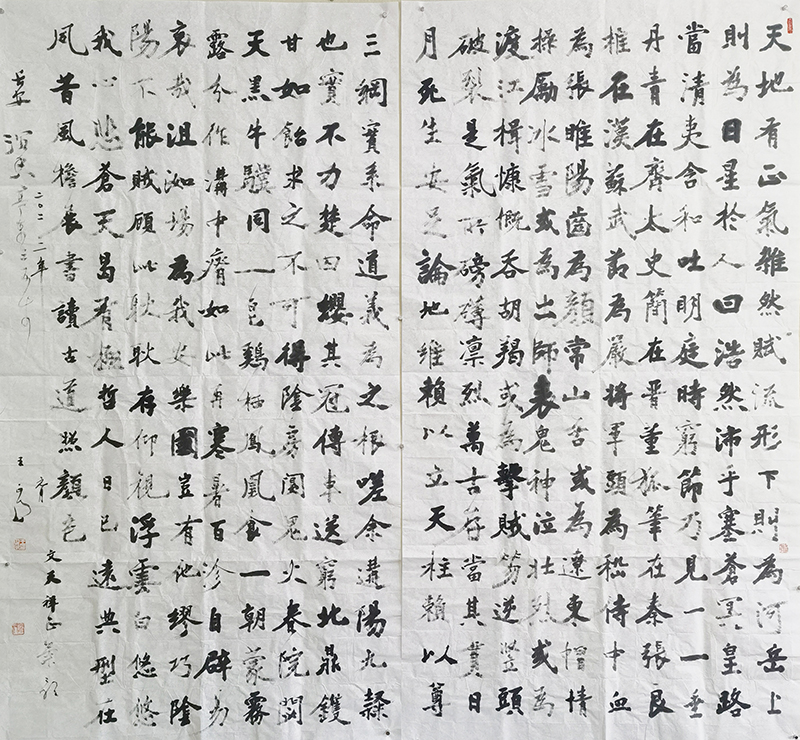 天地有正氣雜然賦流形下則為河岳上
則為日星於人曰浩然沛乎塞蒼冥皇路
當清夷含和吐明庭時窮節乃見一一垂
丹青在齊太史簡在晋董狐筆在秦張良
椎在漢蘇武節為嚴將軍頭為嵇侍中血
為張睢陽齒為顏常山舌或為遼東帽清
操厲冰雪或為出師表鬼神泣壯烈或為
渡江楫慷慨吞胡羯或為擊賊笏逆竪頭
破裂是氣所磅礴凛烈萬古存當其貫日
月死生安足論地維賴以立天柱賴以尊
三綱實系命道義為之根嗟余遘陽九隸
也實不力楚囚纓其冠傳車送窮北鼎鑊
甘如飴求之不可得陰房闃鬼火春院閟
天黑牛驥同一皂鷄栖鳳凰食一朝蒙霧
露分作溝中瘠如此再寒暑百沴自辟易
哀哉沮洳場為我安樂國豈有他繆巧陰
陽不能賊顧此耿耿存仰視浮雲白悠悠
我心悲蒼天曷有極哲人日已遠典型在
夙昔風檐展書讀古道照顏色
文天祥正氣歌